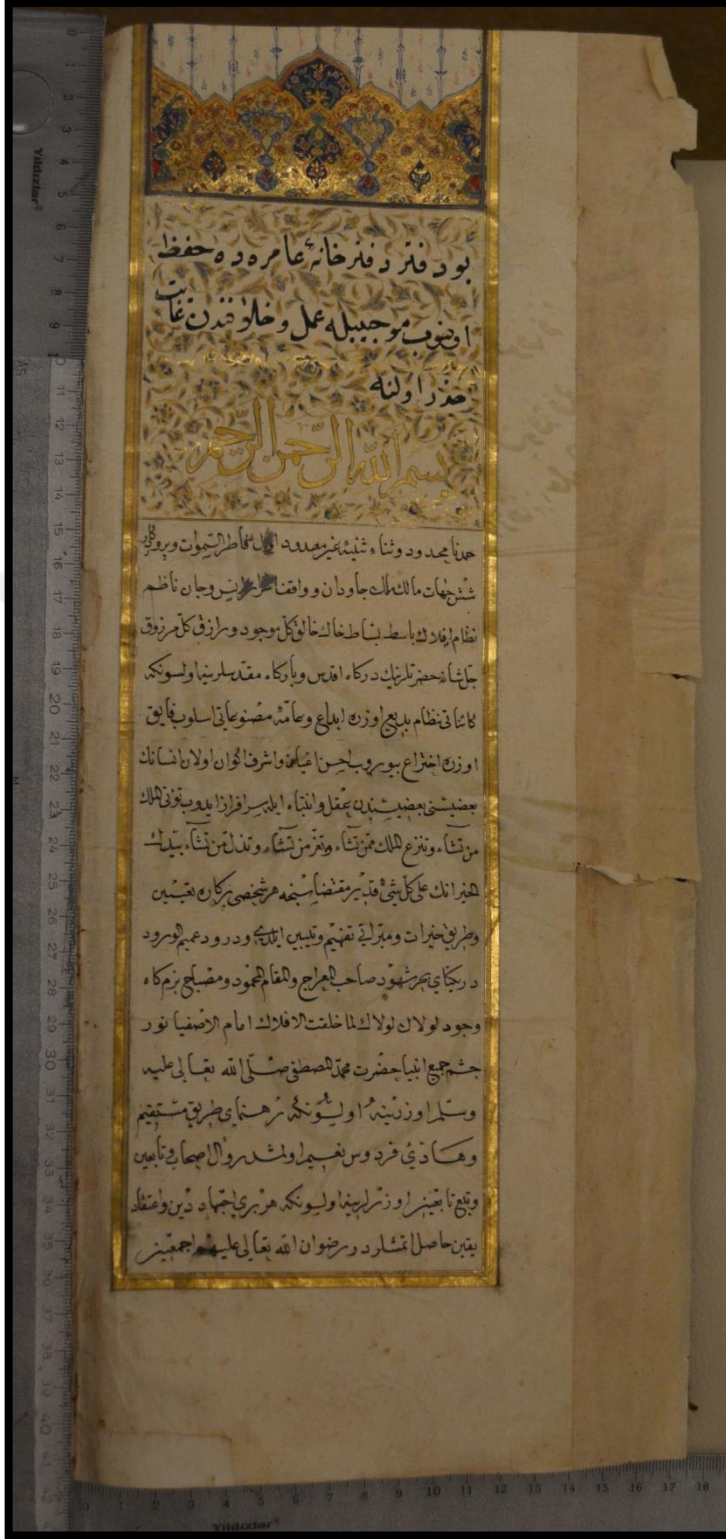 بو دفتر دفترخانهٔ عامره ده حفظ
اولنوب موجبیله عمل و خلافندن غایت
حذر اولنه
بسم الله الرحمن الرحیم
حمد نامحدود وثناء ثنیهٔ غیر معدود اول فاطر السموات
شش جهات مالك ملك جاودان وواقف انس وجان ناظم
نظام افلاك باسط بساط خاك خالق كل موجود ورازق كل مرزوق
جل شانه حضرتلرینك درکاه اقدس وبارکاه مقدسلرینه اولسونکه
کائناتی نظام بدیع اوزره ابداع وعامهٔ مصنوعاتی اسلوب فایق
اوزره اختراع بیوروب احسن اعیان واشرف اکوان اولان انسانك
بعضیسنی بعضیسندن عقل وانتباه ایله سرافراز ایدوب تؤتی الملك
من تشاء وتنزع الملك ممن تشاء وتعز من تشاء وتذل من تشاء بیدك
الخیر انك علی كل شیء قدیر مقتضاسنجه هر شخصی برکاره تعیین
وطریق خیرات ومبراتی تفهیم وتبیین ایلدی ودرود عمیم الورود
در یکتای بحر شهود صاحب المعراج والمقام المحمود ومصباح بزمکاه
وجود لولاك لولاك لما خلقت الافلاك امام الاصفیا نور
چشم جمیع انبیا حضرت محمد المصطفی صلی الله تعالی علیه
وسلم اوزرینه اولسونکه رهنمای طریق مستقیم
وهادئ فردوس نعیم اولمشدر وآل اصحاب وتابعین
وتبع تابعین اوزرلرینه اولسونکه هر بری اجتهاد دین واعتقاد
یقین حاصل اتمشلردر رضوان الله تعالی علیهم اجمعین
Yıldızlar
Yıldızlar
0 1 2 3 4 5 6 7 8 9 10 11 12 13 14 15 16 17 18